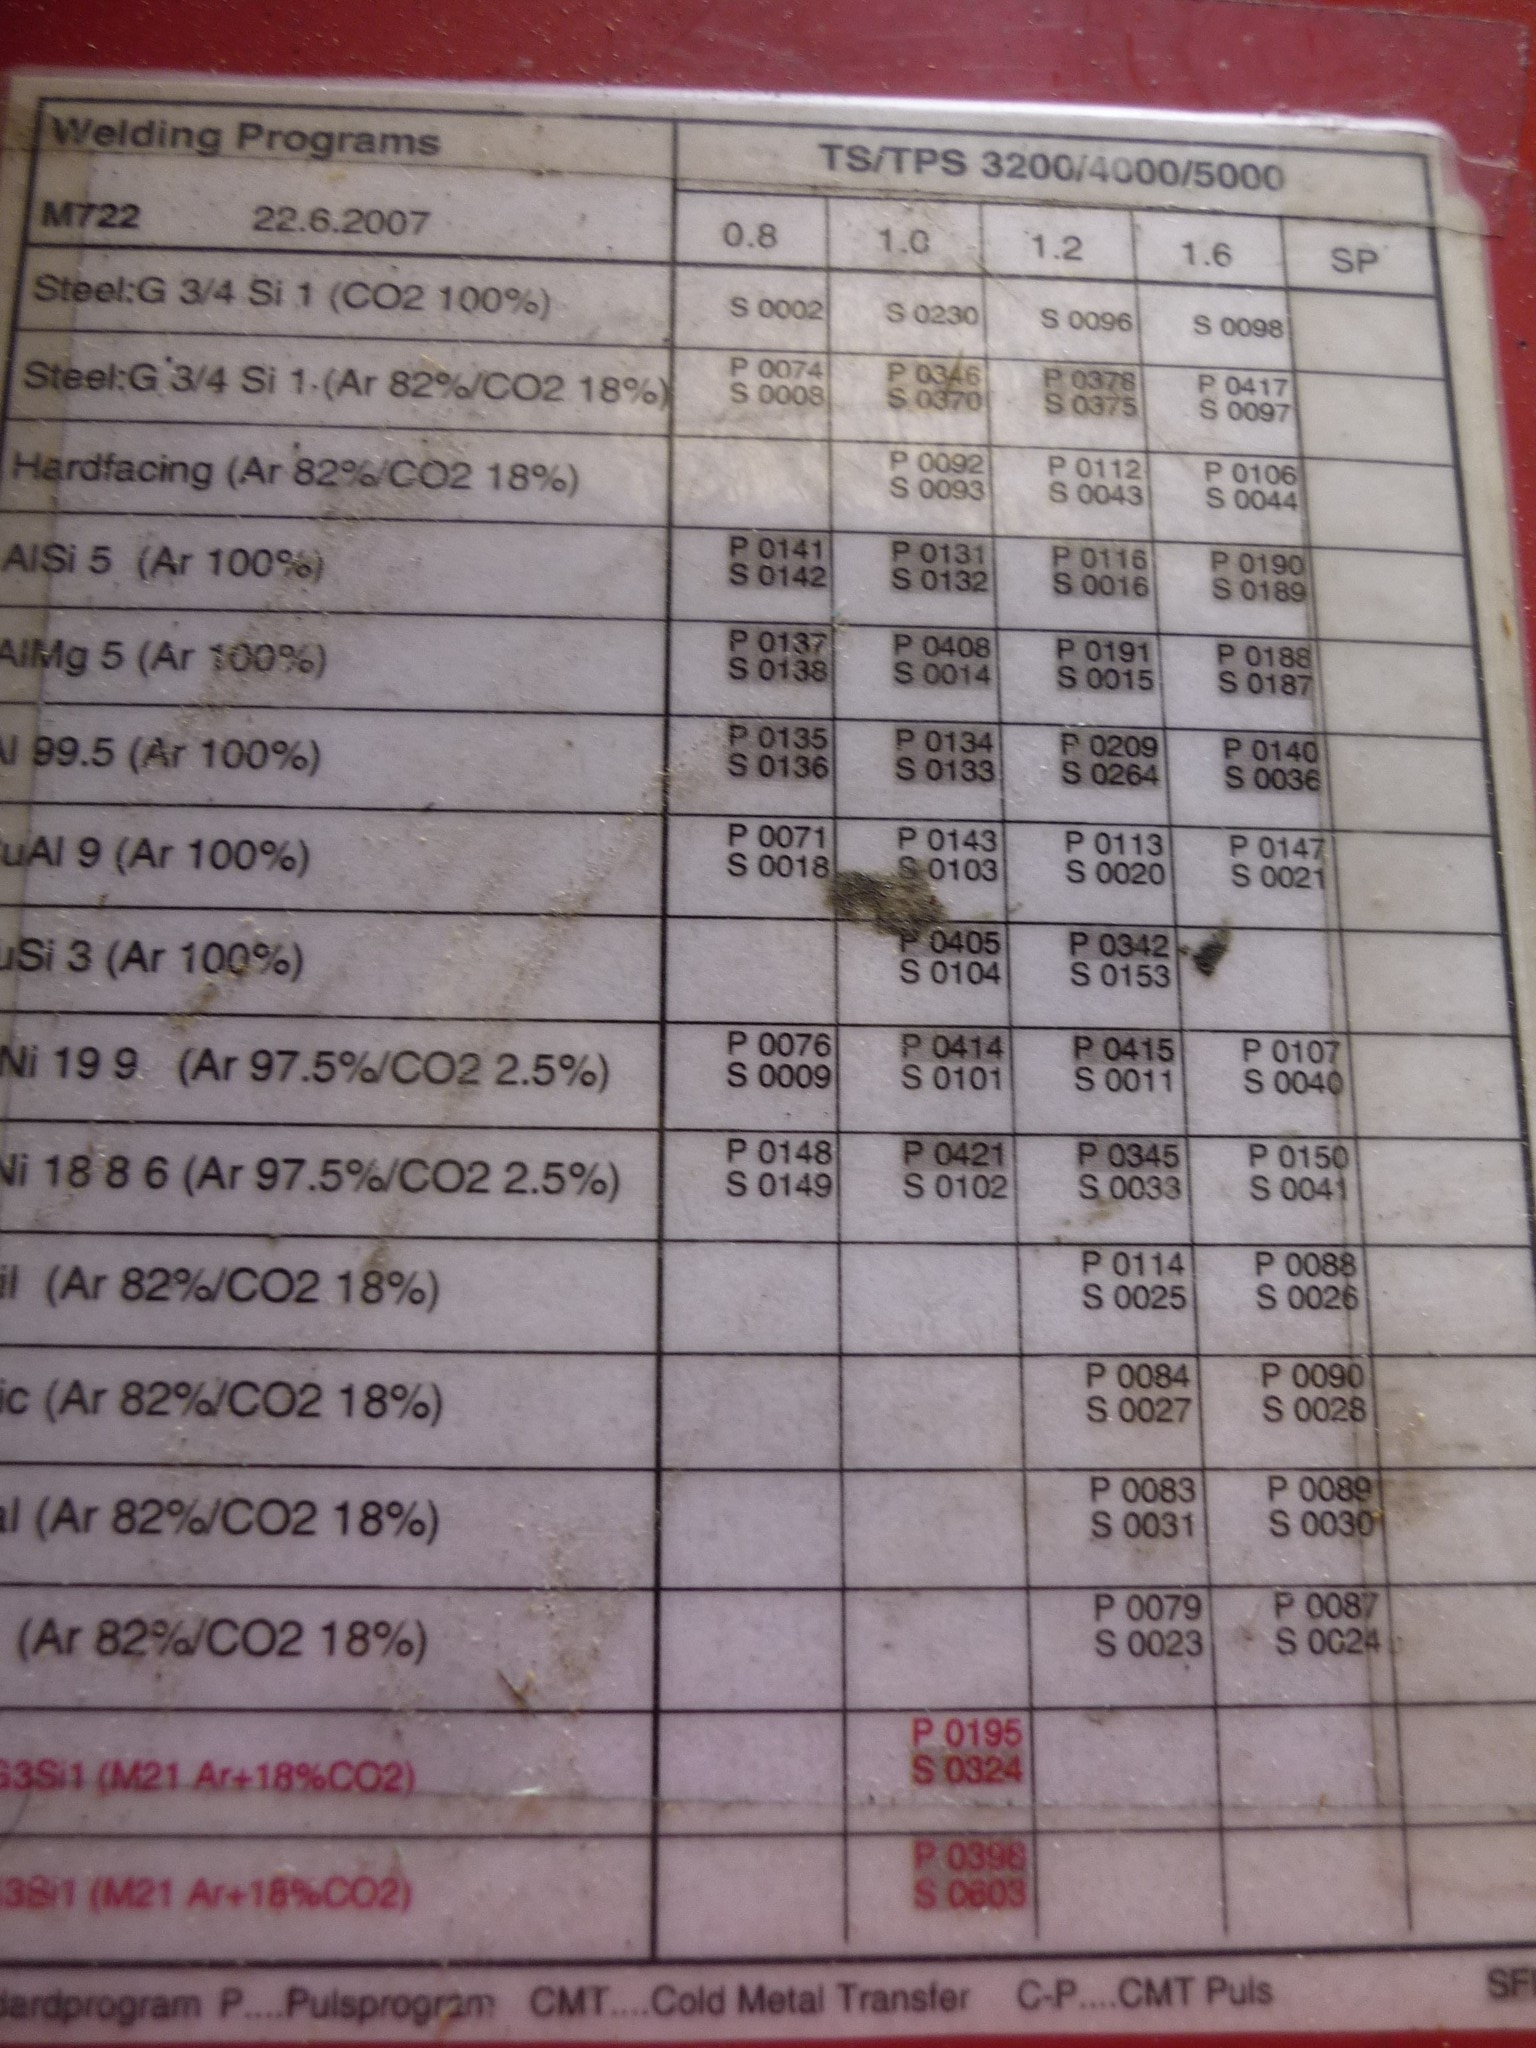 Welding Programs
TS/TPS 3200/4000/5000
M722 22.6.2007
0.8 1.0 1.2 1.6 SP
Steel:G 3/4 Si 1 (CO2 100%)
S 0002 S 0230 S 0096 S 0098
Steel:G 3/4 Si 1 (Ar 82%/CO2 18%)
P 0074 P 0346 P 0378 P 0417
S 0008 S 0370 S 0375 S 0097
Hardfacing (Ar 82%/CO2 18%)
P 0092 P 0112 P 0106
S 0093 S 0043 S 0044
AlSi 5 (Ar 100%)
P 0141 P 0131 P 0116 P 0190
S 0142 S 0132 S 0016 S 0189
AlMg 5 (Ar 100%)
P 0137 P 0408 P 0191 P 0188
S 0138 S 0014 S 0015 S 0187
Al 99.5 (Ar 100%)
P 0135 P 0134 P 0209 P 0140
S 0136 S 0133 S 0264 S 0036
uAl 9 (Ar 100%)
P 0071 P 0143 P 0113 P 0147
S 0018 S 0103 S 0020 S 0021
uSi 3 (Ar 100%)
P 0405 P 0342
S 0104 S 0153
Ni 19 9 (Ar 97.5%/CO2 2.5%)
P 0076 P 0414 P 0415 P 0107
S 0009 S 0101 S 0011 S 0040
Ni 18 8 6 (Ar 97.5%/CO2 2.5%)
P 0148 P 0421 P 0345 P 0150
S 0149 S 0102 S 0033 S 0041
il (Ar 82%/CO2 18%)
P 0114 P 0088
S 0025 S 0026
ic (Ar 82%/CO2 18%)
P 0084 P 0090
S 0027 S 0028
al (Ar 82%/CO2 18%)
P 0083 P 0089
S 0031 S 0030
(Ar 82%/CO2 18%)
P 0079 P 0087
S 0023 S 0024
G3Si1 (M21 Ar+18%CO2)
P 0195
S 0324
3Si1 (M21 Ar+18%CO2)
P 0398
S 0603
dardprogram P....Pulsprogram CMT....Cold Metal Transfer C-P....CMT Puls